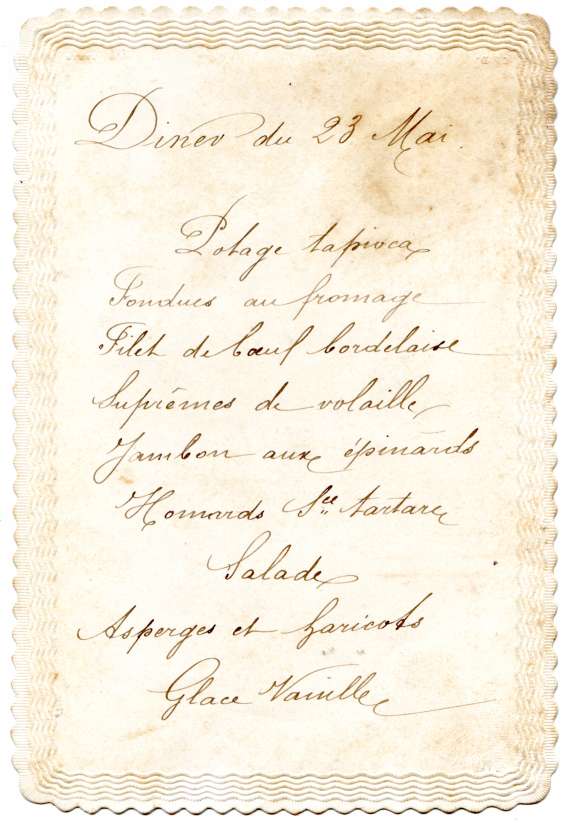 Diner du 23 Mai.
Potage tapioca
Fondues au fromage
Filet de bœuf bordelaise
Suprêmes de volaille
Jambon aux épinards
Homards Sce tartare
Salade
Asperges et haricots
Glace Vanille